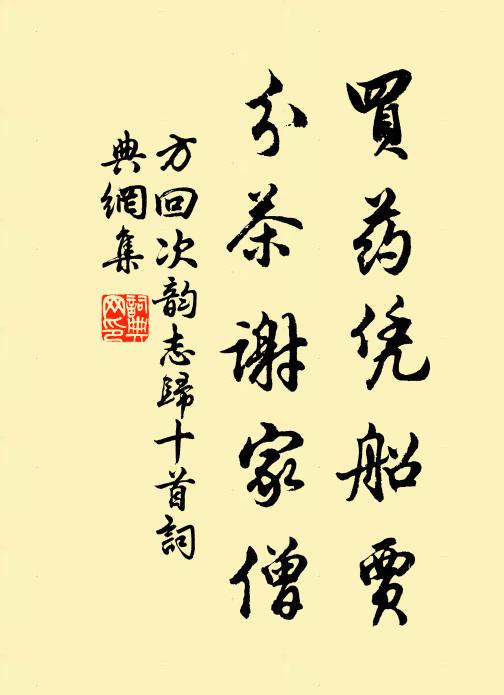 買药凭船賈
分茶謝家僧
方回次韵志歸十首詞
典網集
詞典
网印